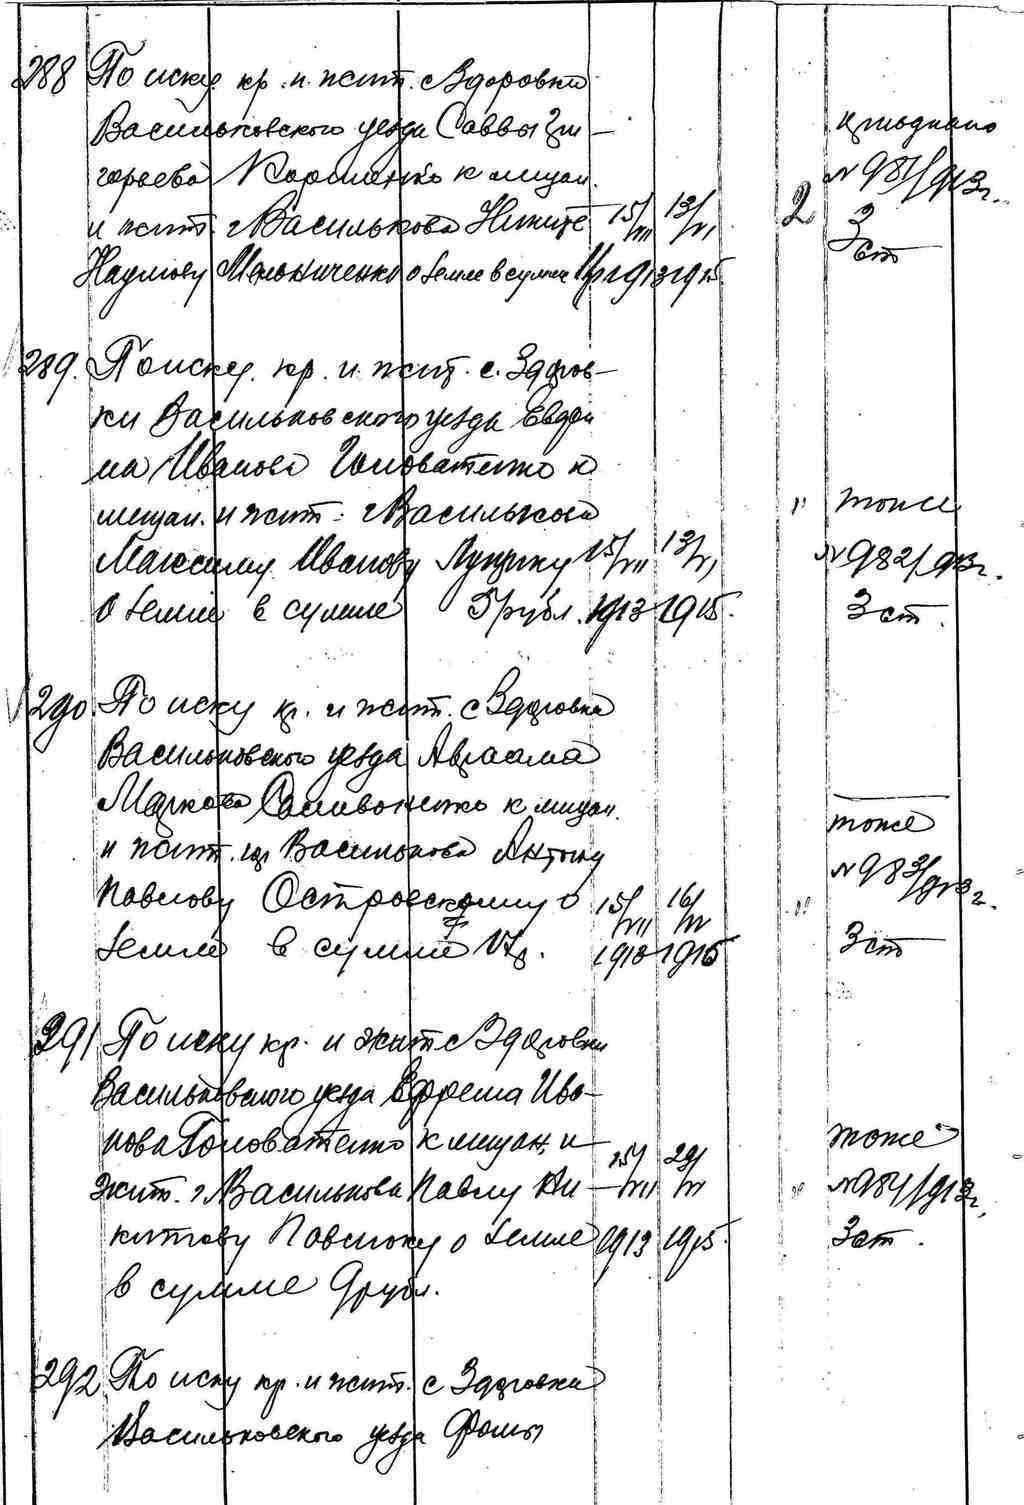 288 По иску кр. и жит. с Здоровки
Васильковского уезда Саввы Гри–
горьева Короленко к мещан.
и жит. г Василькова Никите
Наумову Мельниченко о земле в сумме 11р
15/VII 1913
13/VI 1915
2
№ 981/913 г.
3 ст
289. По иску. кр. и жит. с. Здоров–
ки Васильковского уезда Евдоки
ма Иванова Головатенко к
мещан. и жит. г Василькова
Максиму Иванову Луцику
о земле в сумме 5 рубл.
15/VII 1913
13/VI 1915.
" тоже
№ 982/913 г.
3 ст.
290. По иску кр. и жит. с Здоровки
Васильковского уезда Авраама
Маркова Саливоненко к мещан.
и жит. гор Василькова Антону
Павлову Островскому о
земле в сумме
15/VII 1913
16/IV 1915
" тоже
№ 983/913 г.
3 ст
291 По иску кр. и жит с Здоровки
Васильковского уезда Ефрема Ива–
нова Головатенко к мещан. и
жит. г Василькова Павлу Ни–
китову Павлюку о земле
в сумме 9 рубл.
15/VII 1913
29/IV 1915.
" тоже
№ 984/913 г.
3 ст.
292 По иску кр. и жит. с Здоровки
Васильковского уезда Фомы